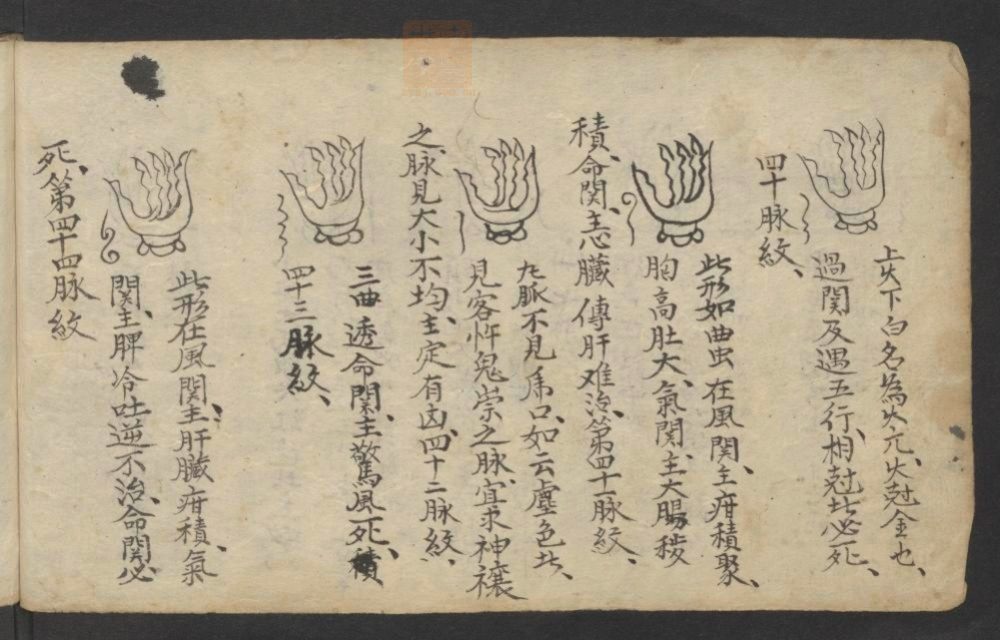 上火下白名為火亢、火尅金也、
過関及遇五行、相尅此必死、
四十脉紋、
此形如曲虫在風関、主疳積聚、
胸高肚大、氣関、主大腸
積、命関、主心臓傳肝难治、第四十一脉紋、
九脈不見虎口、如云塵色此、
見客忤鬼祟之脉、宜求神禳
之、脉見大小不均、主定有凶、四十二脉紋、
三曲透命関、主驚風死、積
四十三脉紋、
此形在風関、主肝臓疳積、氣
関、主脾冷吐逆不治、命関必
死、第四十四脉紋